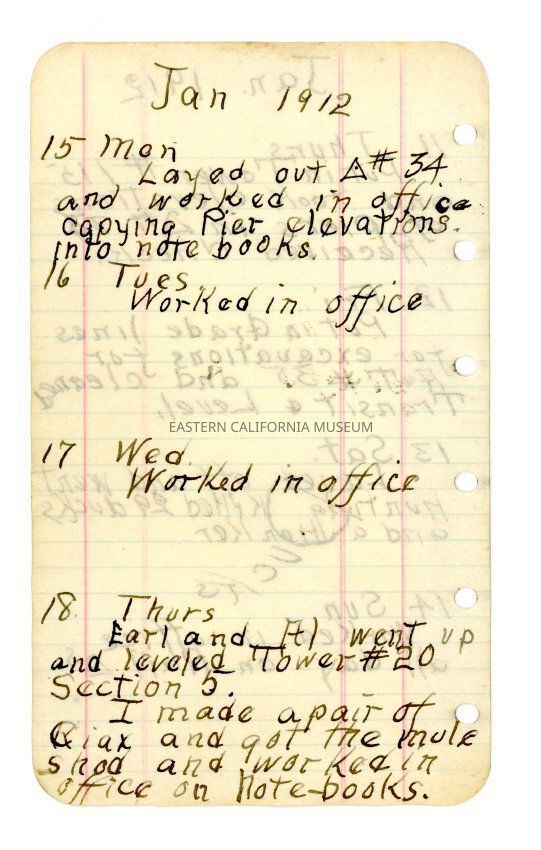 Jan 1912
15 Mon
Layed out △# 34
and worked in office
copying Pier elevations.
into note books.
16 Tues
Worked in office
EASTERN CALIFORNIA MUSEUM
17 Wed.
Worked in office
18. Thurs
Earl and Al went up
and leveled Tower #20
Section 5.
I made a pair of
and got the mule
shod and worked in
office on note-books.